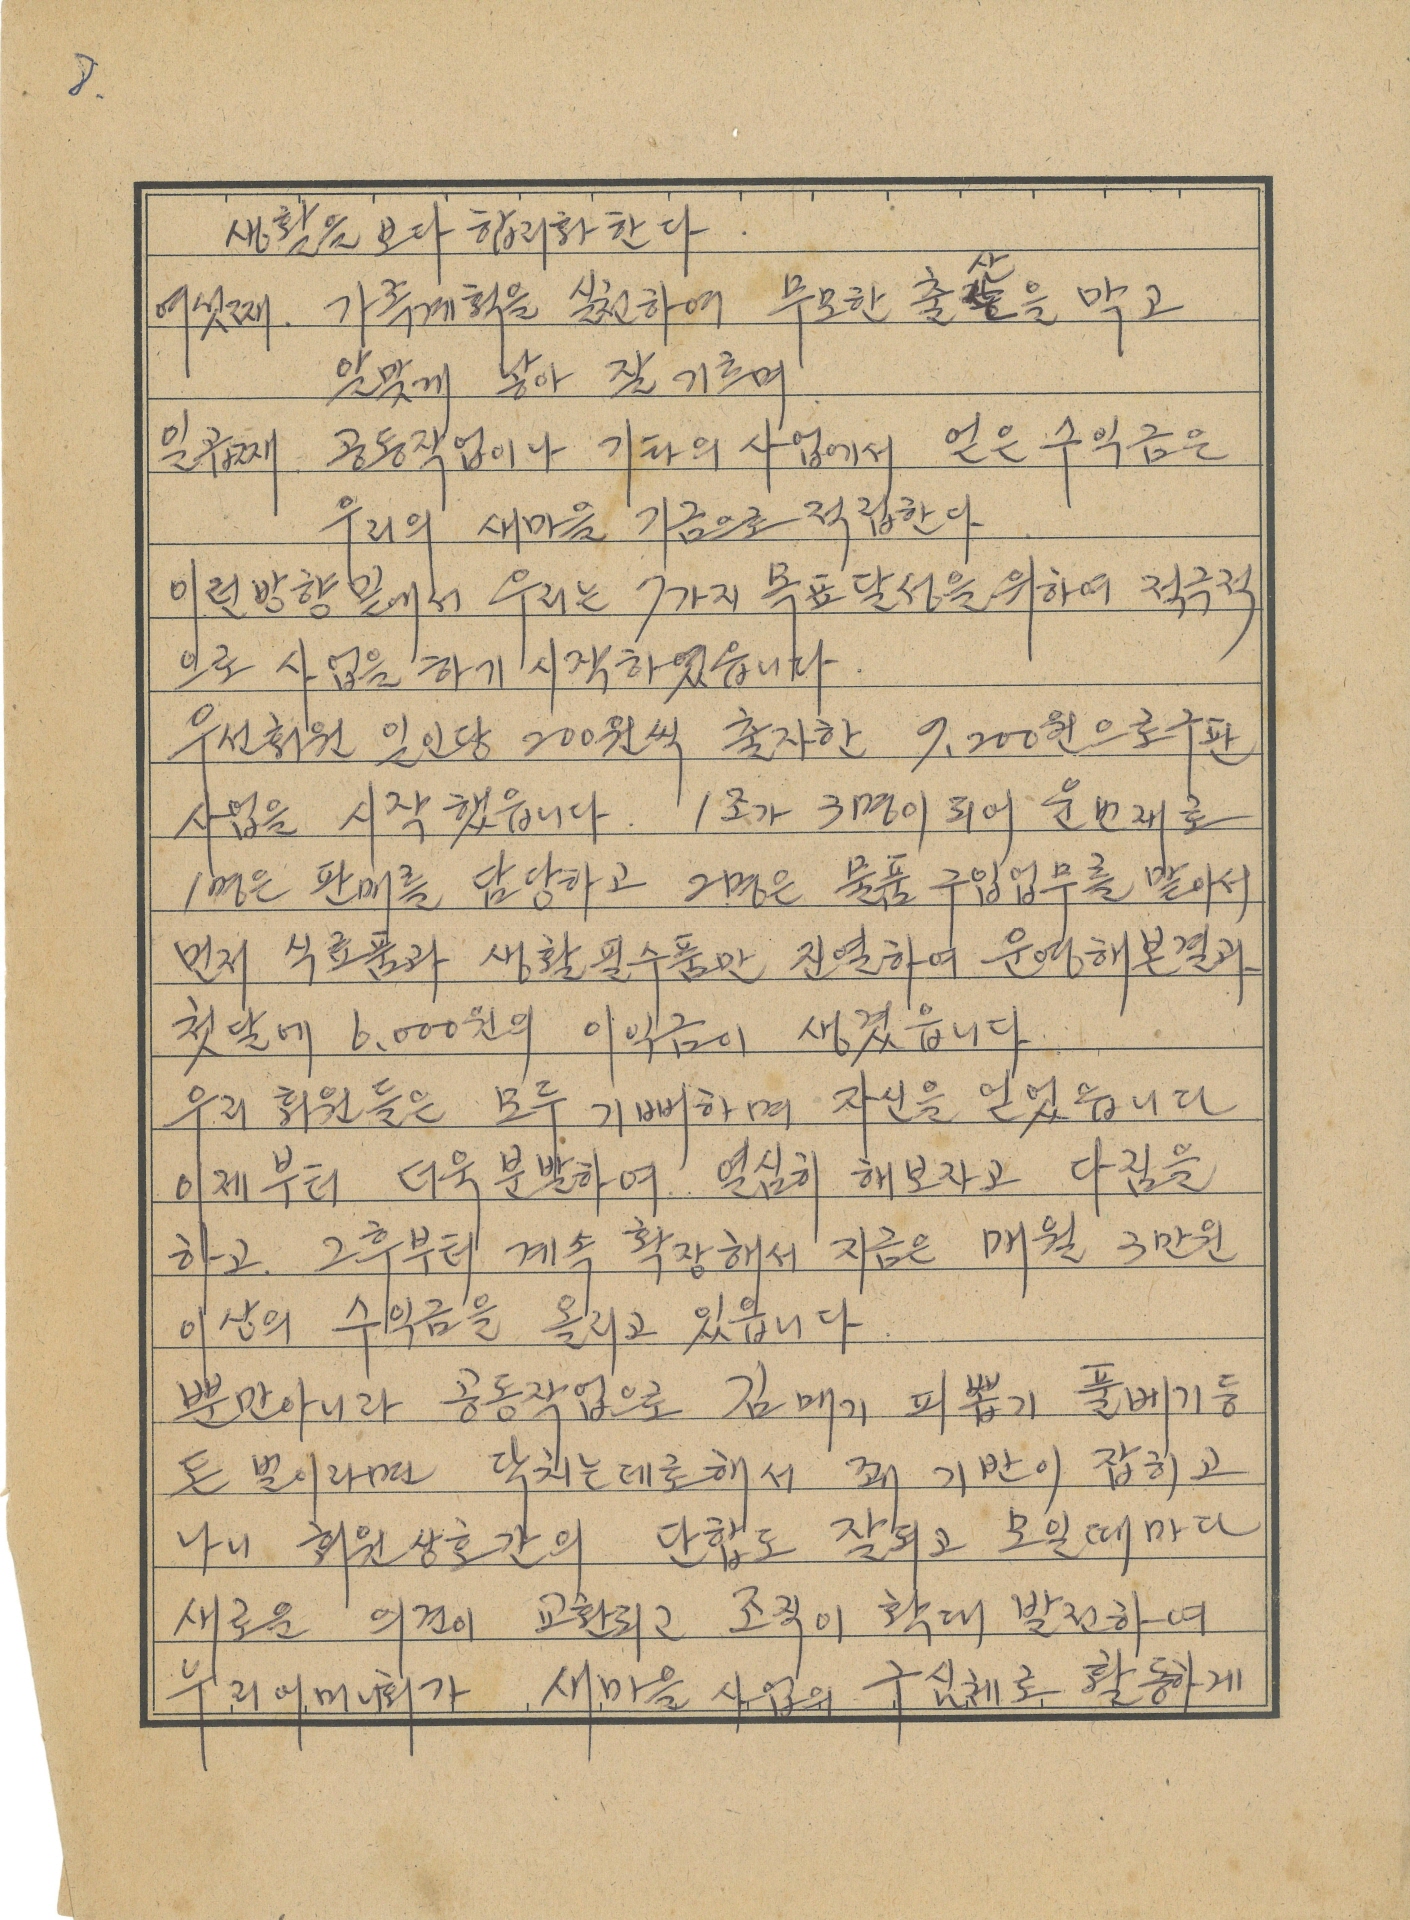 8.
생활을 보다 합리화 한다.
여섯째. 가족계획을 실천하여 무모한 출산을 막고
알맞게 낳아 잘 기르며.
일곱째. 공동작업이나 기타의 사업에서 얻은 수익금은
우리의 새마을 기금으로 적립한다.
이런방향 밑에서 우리는 7가지 목표달성을 위하여 적극적
으로 사업을 하기 시작하였읍니다.
우선회원 일인당 200원씩 출자한 9,200원으로 구판
사업을 시작했읍니다. 1조가 3명이 되어 윤번제로
1명은 판매를 담당하고 2명은 물품 구입업무를 맡아서
먼저 식료품과 생활필수품만 진열하여 운영해본결과
첫달에 6,000원의 이익금이 생겼읍니다.
우리 회원들은 모두 기뻐하며 자신을 얻었읍니다
이제부터 더욱 분발하여. 열심히 해보자고 다짐을
하고. 그후부터 계속 확장해서 지금은 매월 3만원
이상의 수익금을 올리고 있읍니다.
뿐만아니라 공동작업으로 김매기 피뽑기 풀베기등
돈벌이라면 닥치는데로해서 꽤 기반이 잡히고
나니 회원상호간의 단합도 잘되고 모일때마다
새로운 의견이 교환되고 조직이 확대 발전하여
우리어머니회가 새마을 사업의 구심체로 활동하게